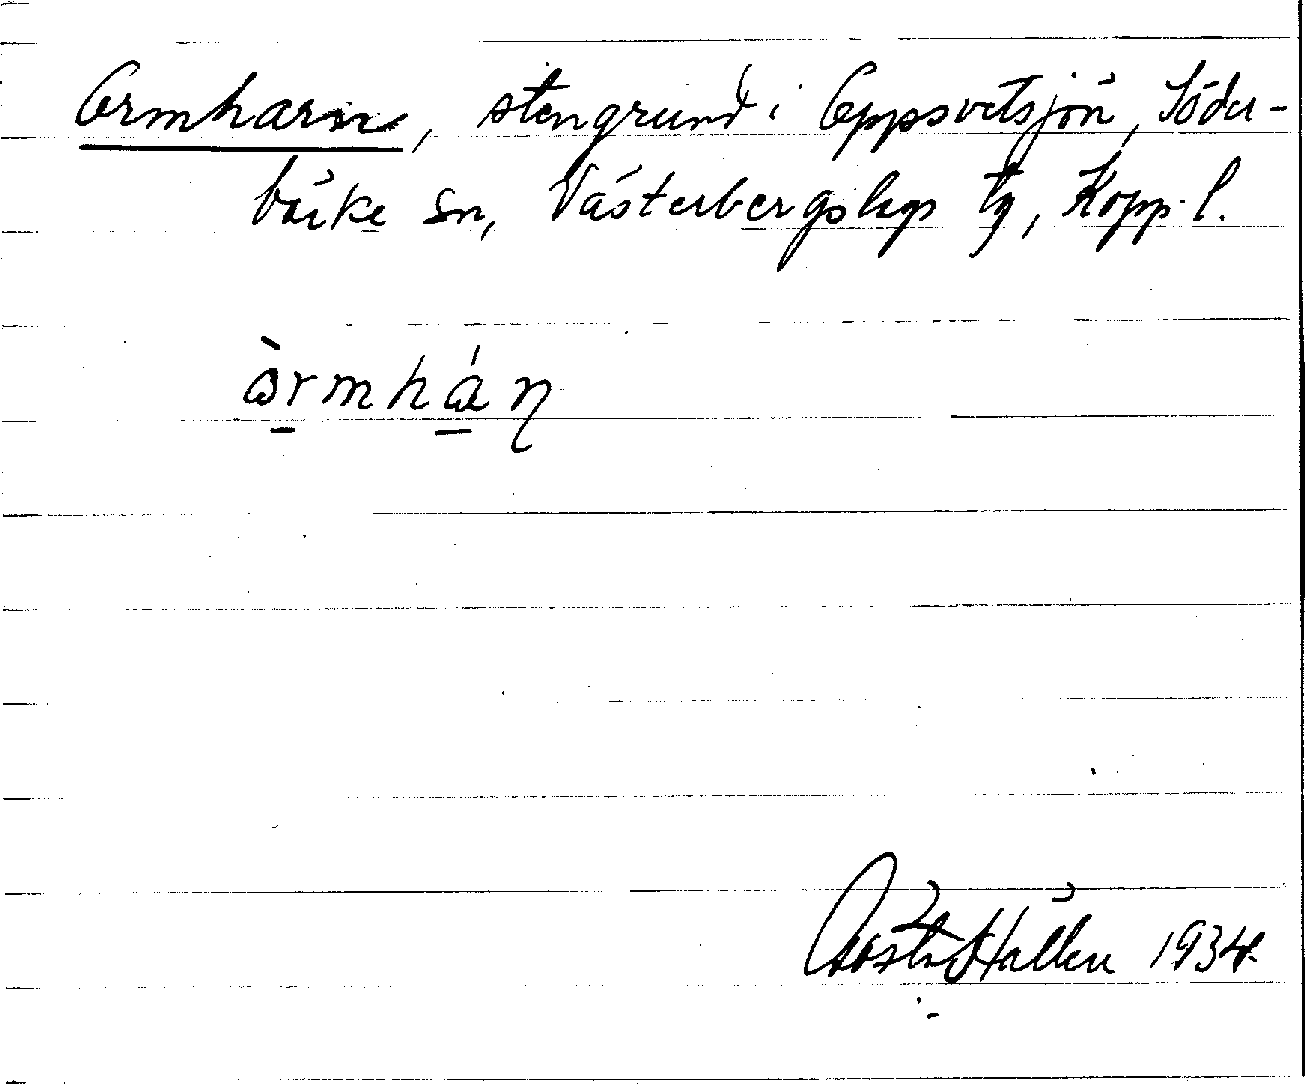 Ormharen, stengrund i Oppsvetsjön, Söder-
bärke sn, Västerbergslags tg, Kopp. l.
òrmhán
Gösta Hallen 1934.